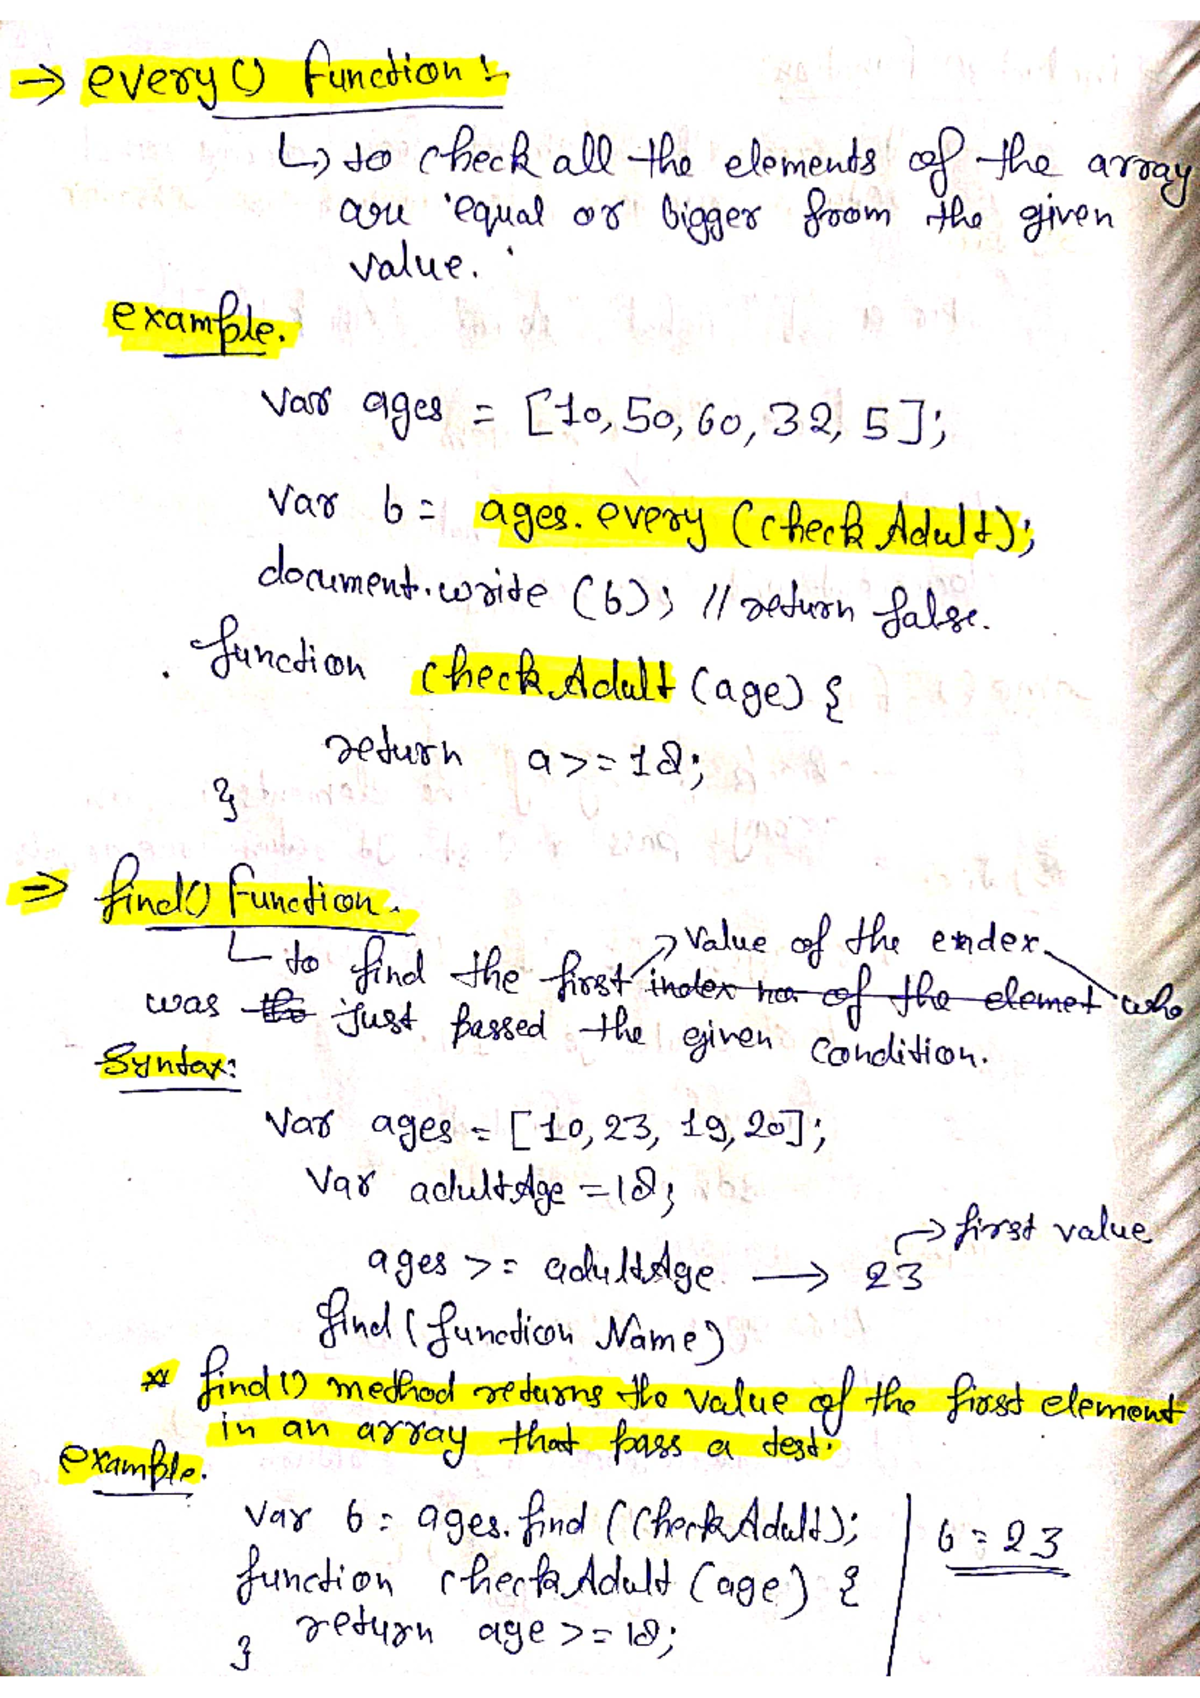 ⇒ every() function :-
↳ to check all the elements of the array
are 'equal or bigger from the given
value.'
example.
var ages = [10, 50, 60, 32, 5];
var b = ages.every (checkAdult);
document.write (b); // return false.
function checkAdult (age) {
return a >= 18;
}
⇒ find() function.
→ value of the endex
↳ to find the first index no. of the elemet who
was the just passed the given condition.
Syntax:
var ages = [10, 23, 19, 20];
var adultAge = 18;
→ first value
ages >= adultAge → 23
find (function Name)
** find() method returns the value of the first element
in an array that pass a test.
example.
var b = ages.find (checkAdult); b = 23
function checkAdult (age) {
return age >= 18;
}